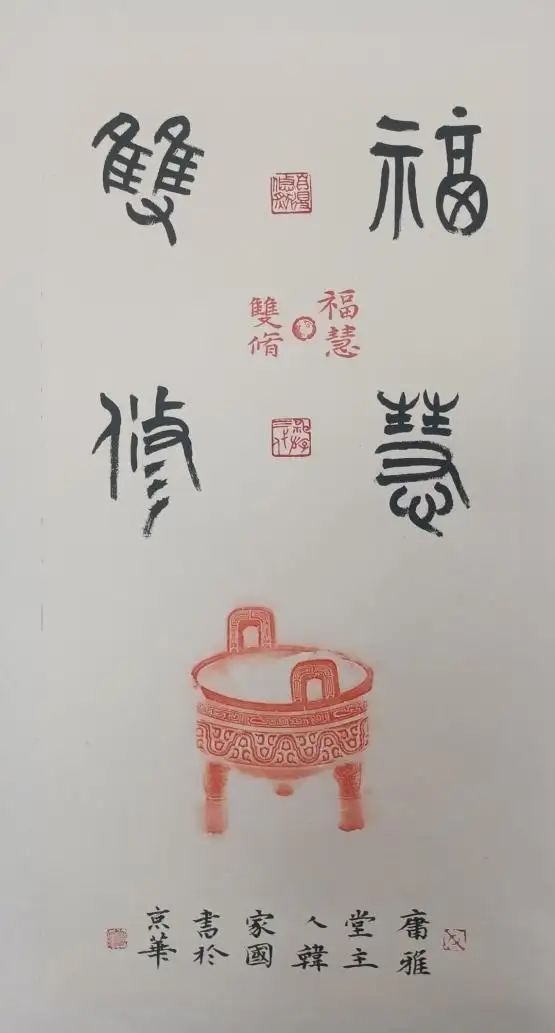 福慧
雙修
福慧
雙脩
庸雅
堂主
人韓
家國
書於
京華